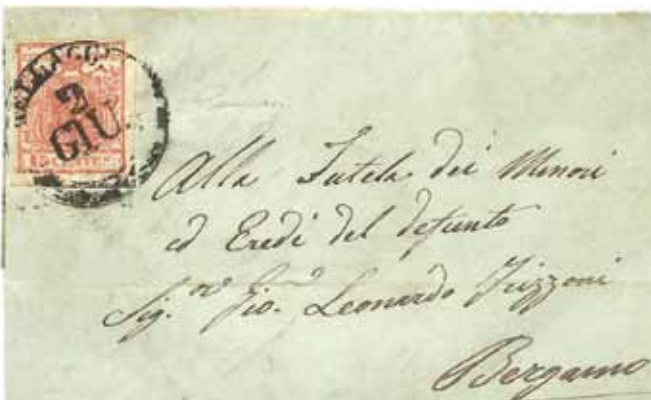 2
GIU.
15 CENTES
Alla Tutela dei Minori
ed Eredi del defunto
Sig.or Gio. Leonardo Frizzoni
Bergamo